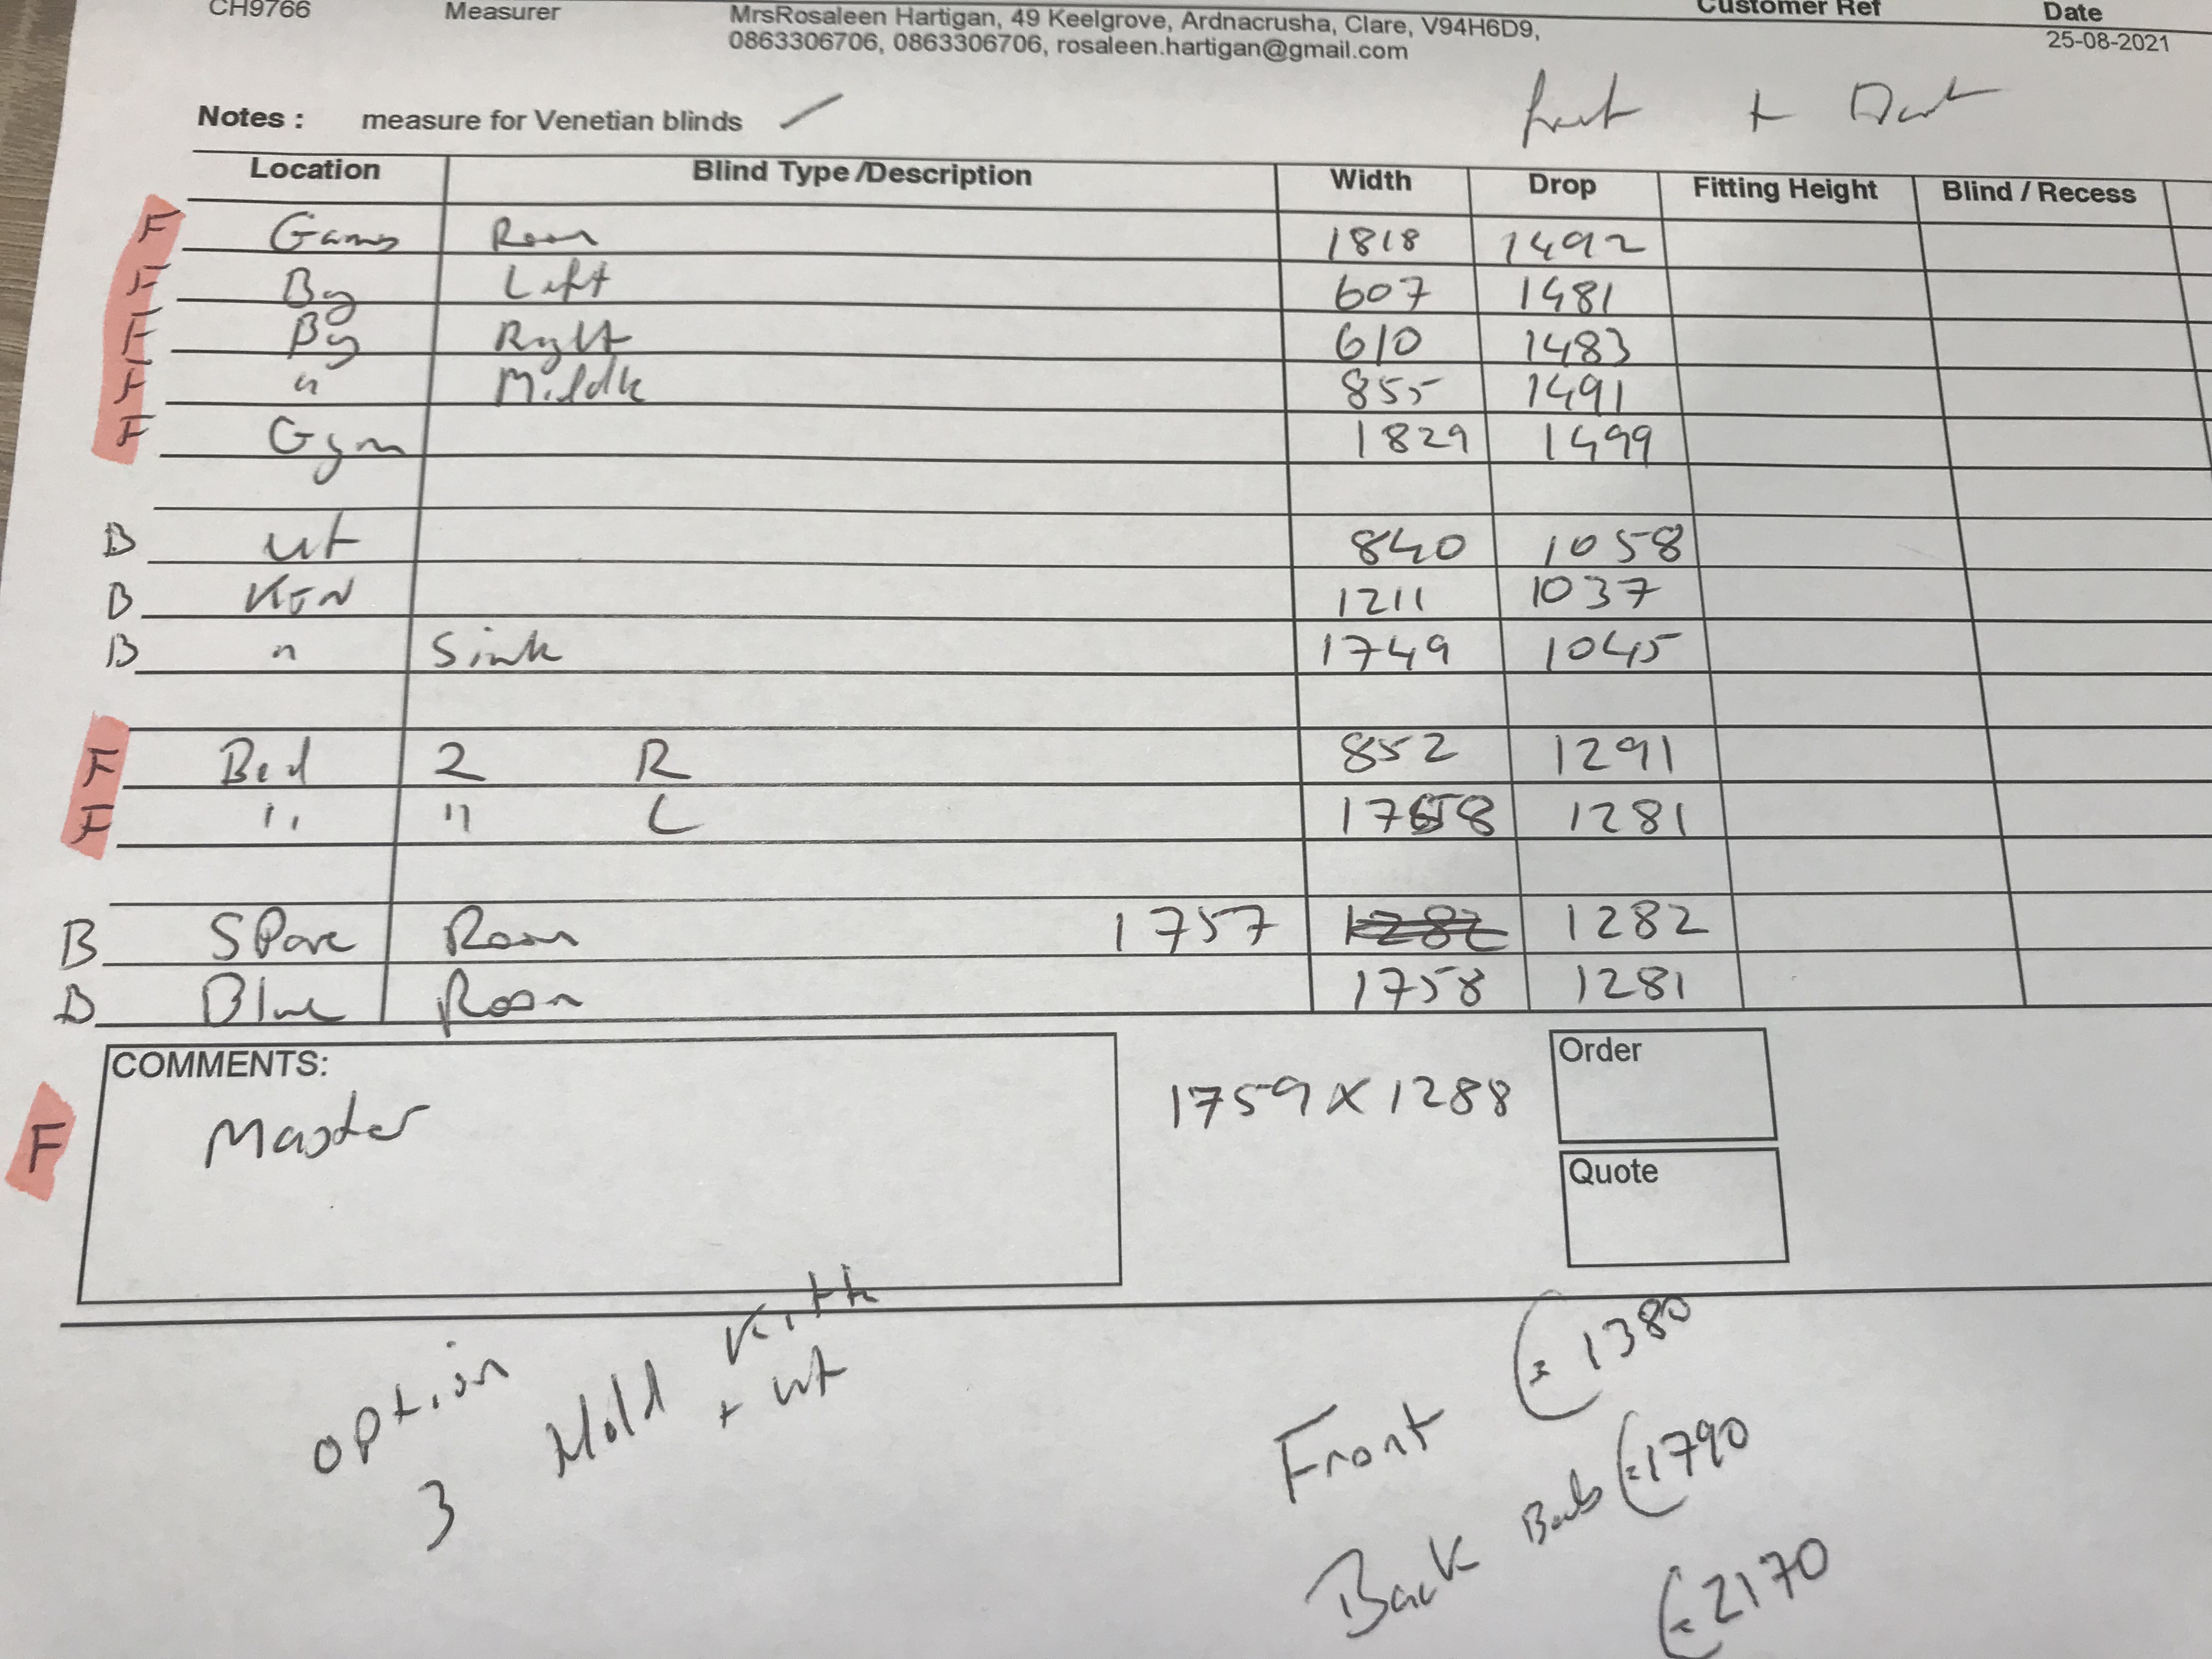 CH9766 Measurer MrsRosaleen Hartigan, 49 Keelgrove, Ardnacrusha, Clare, V94H6D9, Customer Ref Date
0863306706, 0863306706, rosaleen.hartigan@gmail.com 25-08-2021
+
Notes : measure for Venetian blinds
Location Blind Type /Description Width Drop Fitting Height Blind / Recess
F Games Room 1818 1492
F By Left 607 1481
F By Right 610 1483
F " Middle 855 1491
F Gym 1829 1499
B ut 840 1058
B KTN 1211 1037
B " Sink 1749 1045
F Bed 2 R 852 1291
F " " L 1758 1281
B Spare Room 1757 1282
B Blue Room 1758 1281
COMMENTS: Order
F Master 1759 x 1288
Quote
option Kith
3 + ut
Front € 1380
Back €1790
€2170